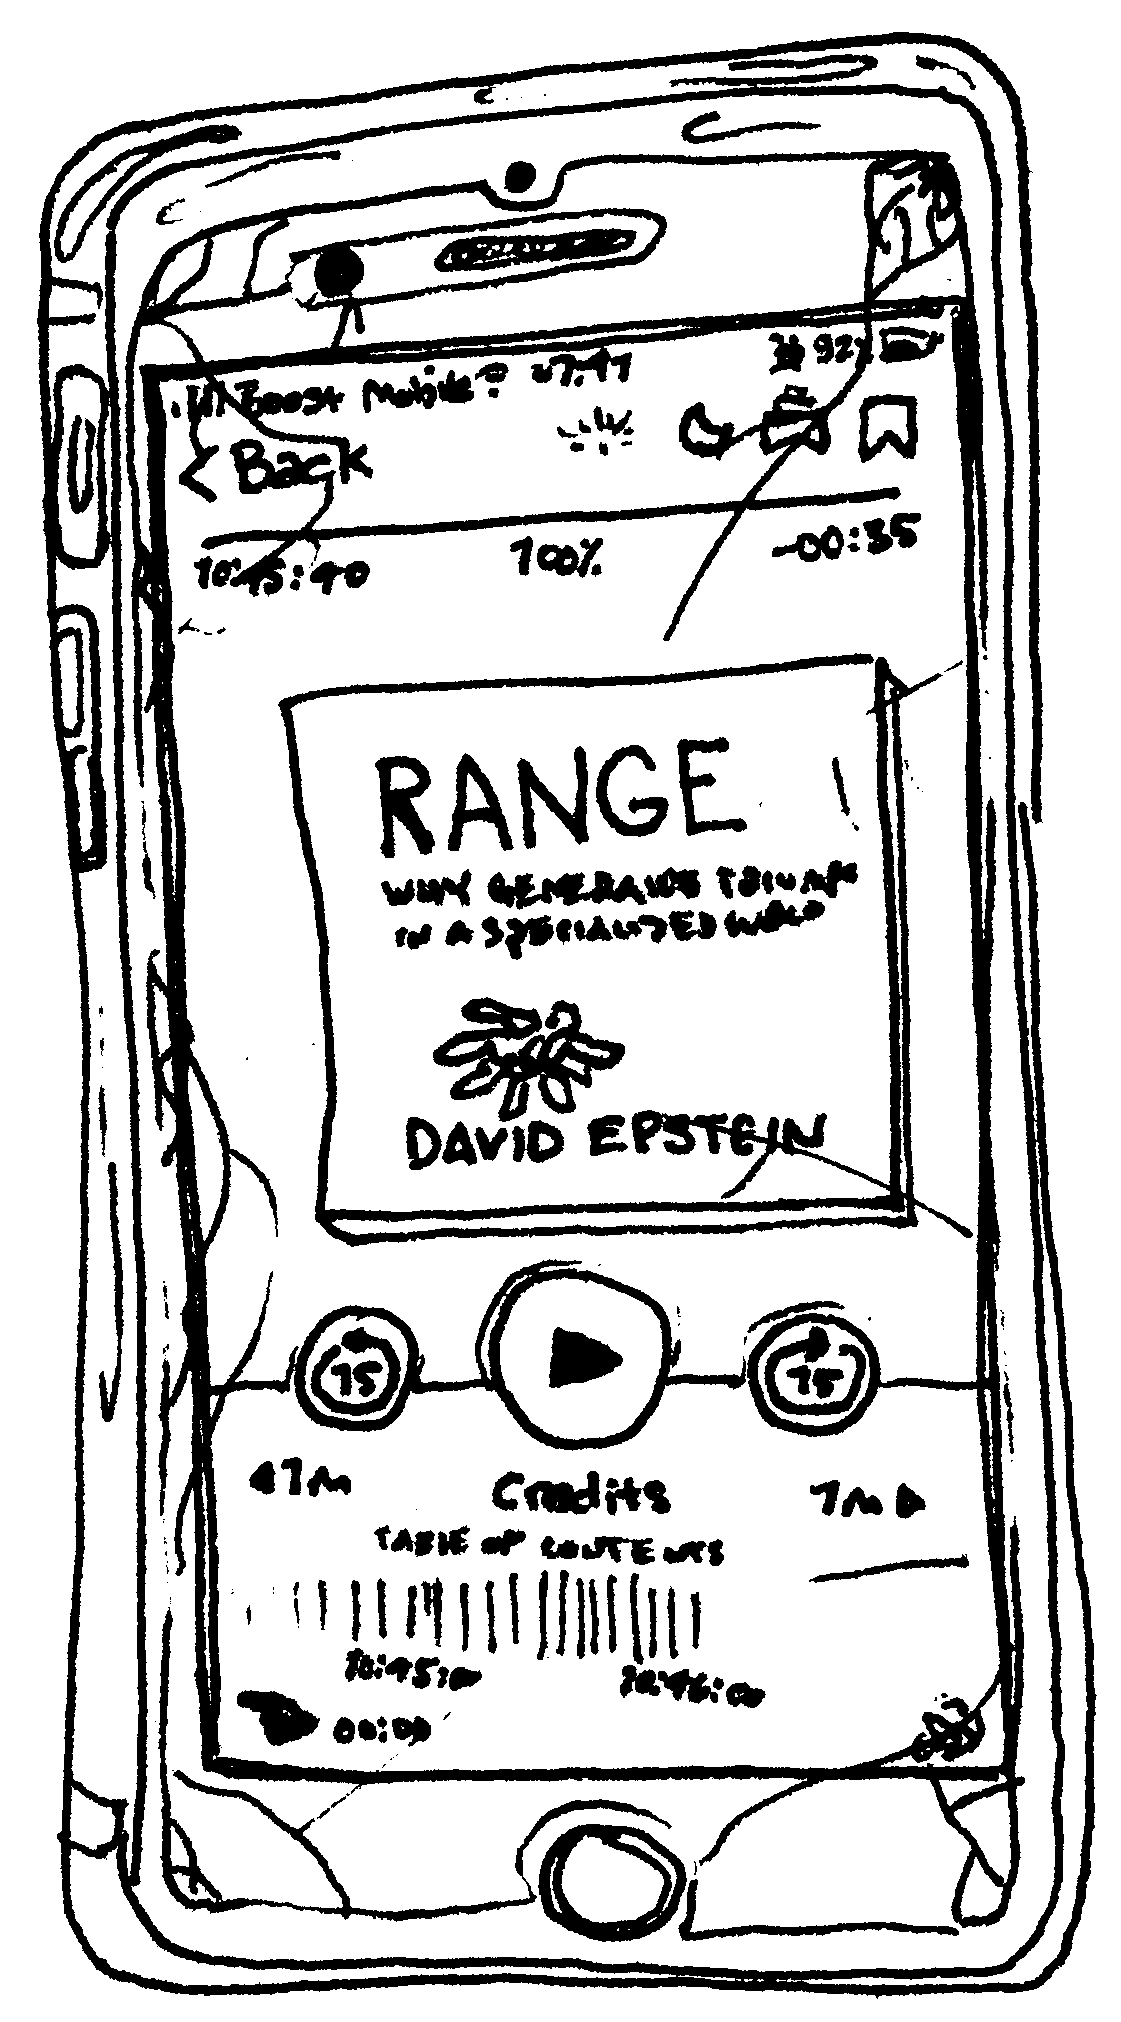 Boost Mobile 7:41 92%
< Back
10:45:40 100% -00:35
RANGE
WHY GENERALISTS TRIUMPH
IN A SPECIALIZED WORLD
DAVID EPSTEIN
15 15
47m Credits 7m
TABLE OF CONTENTS
10:45:00 10:46:00
00:00